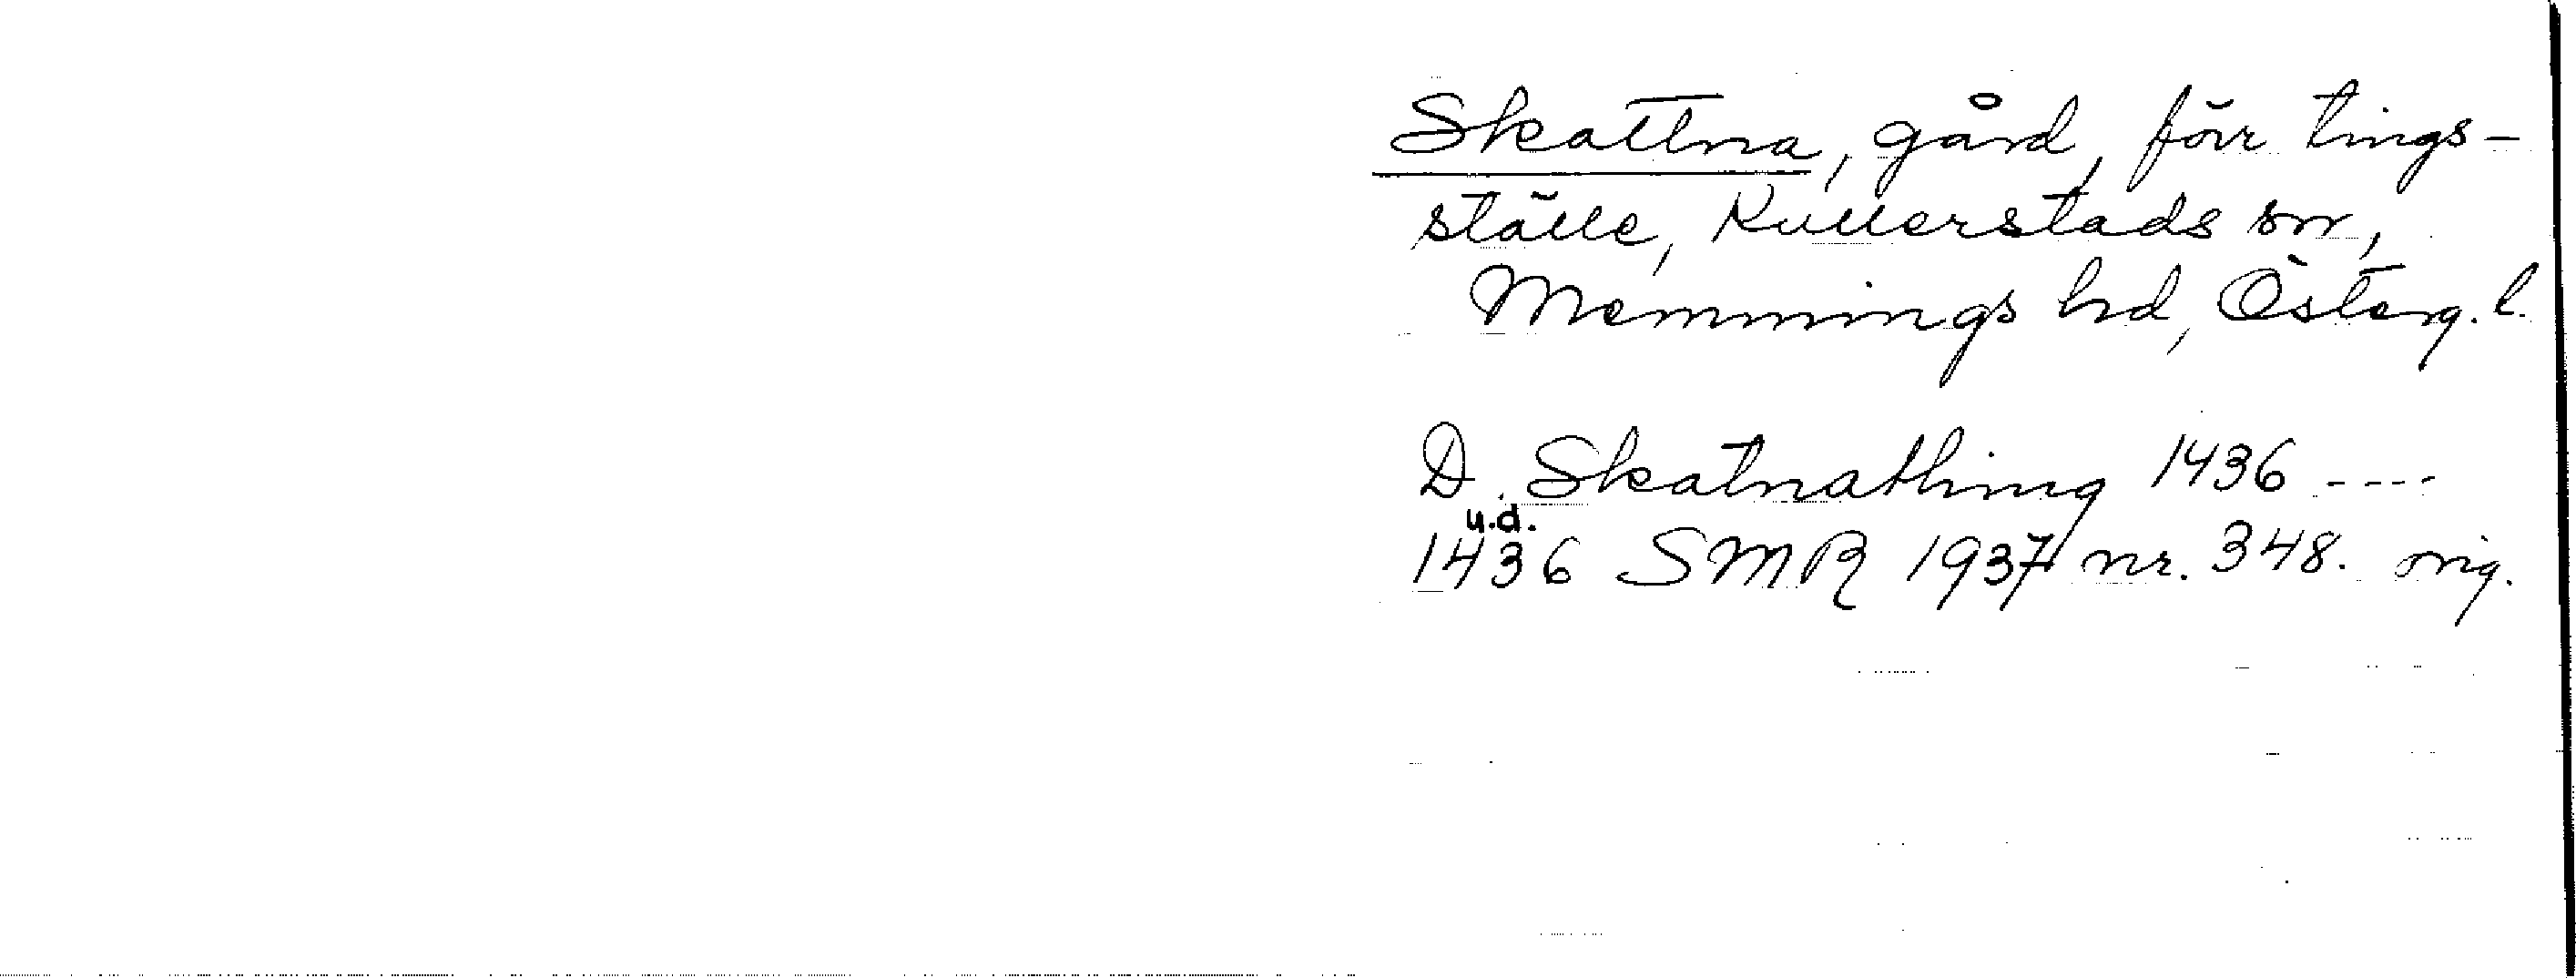 Skattna, gård, förr tings-
ställe, Kullerstads sn,
Memmings hd, Österg. l.
D. Skatnathing 1436 ----
u.d.
1436 SMR 1937 nr. 348. orig.